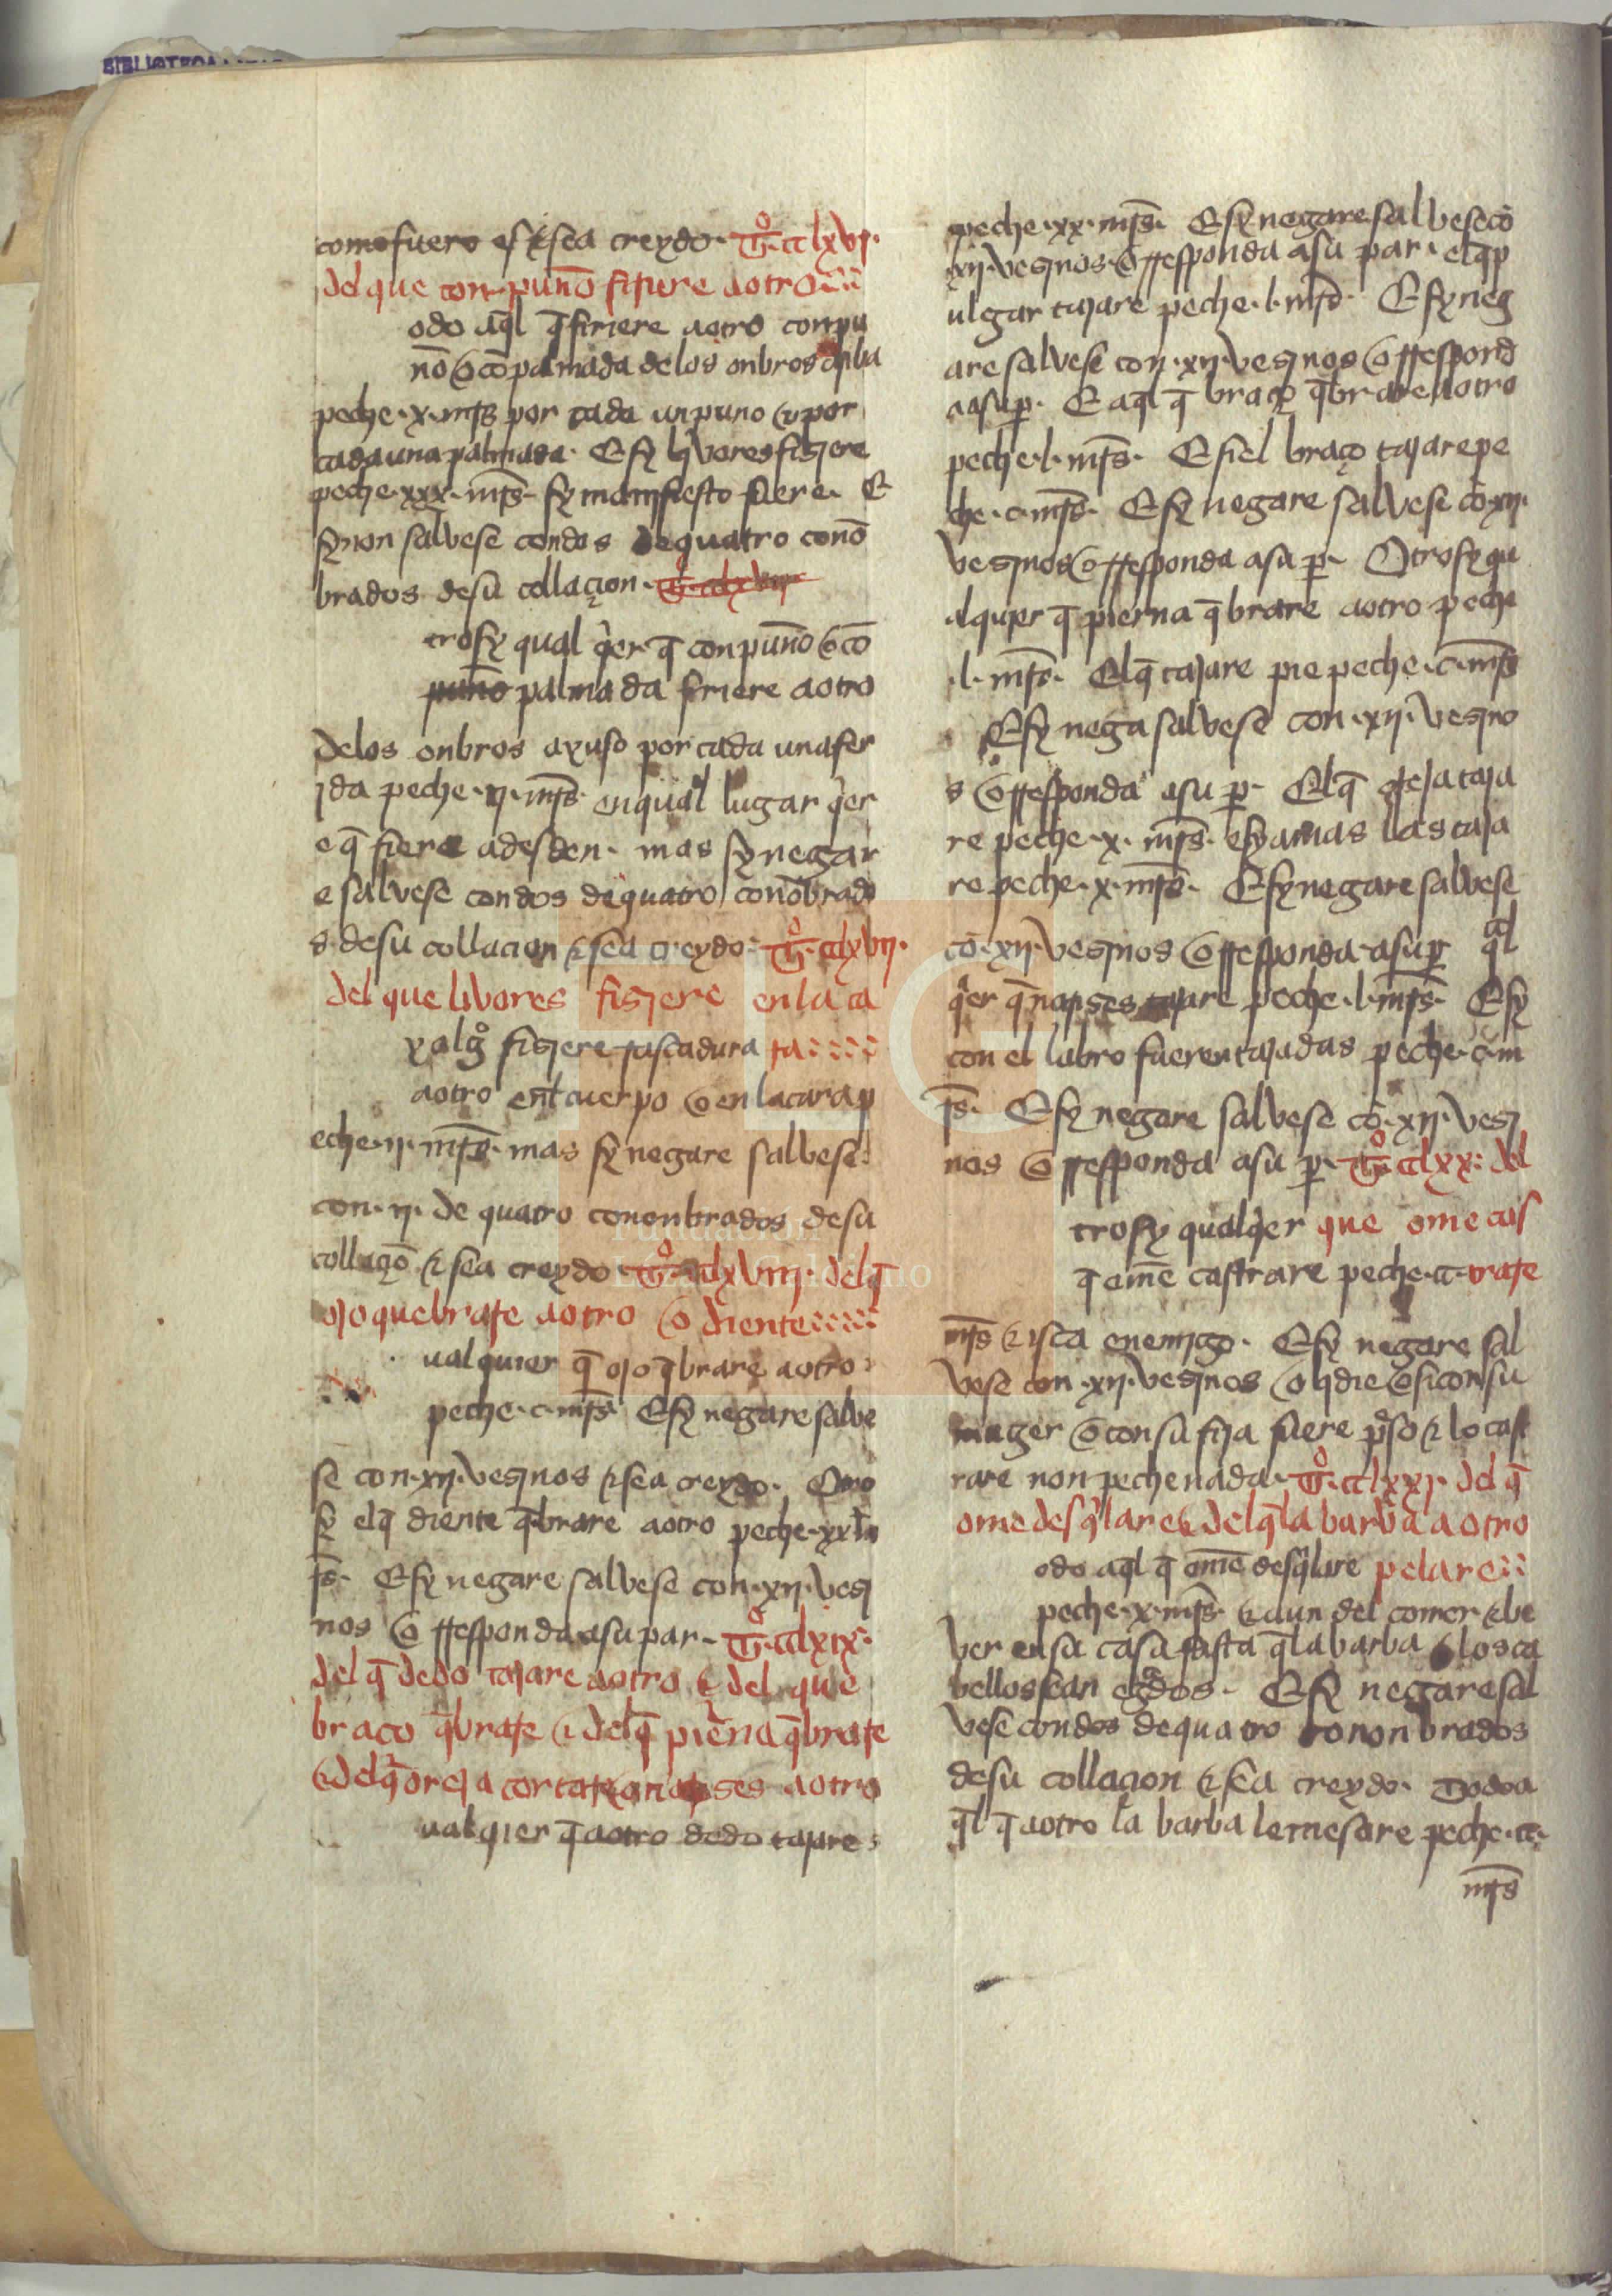 BIBLIOTECA
como fuero es ⁊ sea creydo. Tͦ. cclxvj.
del que con puño firiere a otro
odo aq̃l q̃ firiere a otro con pu
ño o cõ palmada de los onbros arriba
peche .x. mr̃s por cada un puno ⁊ por
cada una palmada. E sy livores fisiere
peche .xxx. mr̃s. sy manifiesto fuere. E
sy non salvese con dos de quatro conõ
brados de su collaçion. Tͦ. cclxvij
trosy qual q̇er q̃ con puño o cõ
puño palmada firiere a otro
de los onbros ayuso por cada una fer
ida peche .ij. mr̃s. en qual lugar q̇er
e q̃ fiere a desden. mas sy negar
e salvese con dos de quatro conõbrado
s de su collacion ⁊ sea creydo. Tͦ. cclxvij.
del que livores fisiere en la ca
y algͦ fisiere rascadura ra
a otro en̄l cuerpo o en la cara p
eche .ij. mr̃s. mas sy negare salvese
con .ij. de quatro cononbrados de su
collaçõ ⁊ sea creydo. Tͦ. cclxviij. del q̃
ojo quebrare a otro o diente
ualquier q̃ ojo q̃brare a otro
peche .c. mr̃s. E sy negare salve
se con .xij. vesinos ⁊ sea creydo. Otro
sy el q̃ diente q̃brare a otro peche .xx. m
r̃s. E sy negare salvese con .xij. vesi
nos o rresponda a su par. Tͦ. cclxix.
del q̃ dedo tajare a otro ⁊ del que
braço q̃brare ⁊ del q̃ pierna q̃brare
⁊ del q̃ oreja cortare o narises a otro
ualquier q̃ a otro dedo tajare
peche .xx. mr̃s. E sy negare salvese cõ
xij. vesinos. o rresponda a su par. el q̃ p
ulgar tajare peche .l. mr̃s. E sy neg
are salvese con .xij. vesinos o rrespond
a a su p̲. E aq̃l q̃ braço q̃brare a otro
peche .l. mr̃s. E si el braço tajare pe
che .c. mr̃s. E sy negare salvese cõ .xij.
vesinos o rresponda a su p̲. Otrosy qu
alquier q̃ pierna q̃brare a otro peche
.l. mr̃s. El q̃ tajare pie peche .c. mr̃s
E sy nega salvese con .xij. vesino
s o rresponda a su p̲. El q̃ oreja taja
re peche .x. mr̃s. e sy amas las taja
re peche .x. mr̃s. E sy negare salvese
cõ .xij. vesinos o rresponda a su p̲ q̃l
q̇er q̃ narises tajare peche .l. mr̃s. E sy
con el labro fueren tajadas peche .c. m
r̃s. E sy negare salvese cõ .xij. vesi
nos o rresponda a su p̲. Tͦ. cclxx. del
trosy qualq̇er que ome cas
q̃ ome castrare peche .cc. trare
mr̃s ⁊ isca enemigo. E sy negare sal
vese con .xij. vesinos o lidie o si con su
muger o con su fija fuere p̃so ⁊ lo cast
rare non peche nada. Tͦ. cclxxj. del q̃
ome desq̇lare ⁊ del q̃ la barva a otro
odo aq̃l q̃ ome desq̇lare pelare
peche .x. mr̃s. ⁊ aun del comer ⁊ be
ver en su casa fasta q̃ la barba o los ca
bellos sean egᵃdos. E sy negare sal
vese con dos de quatro cononbrados
de su collacion ⁊ sea creydo. Todo a
q̃l q̃ a otro la barba le mesare peche .cc.
mr̃s
Fundación